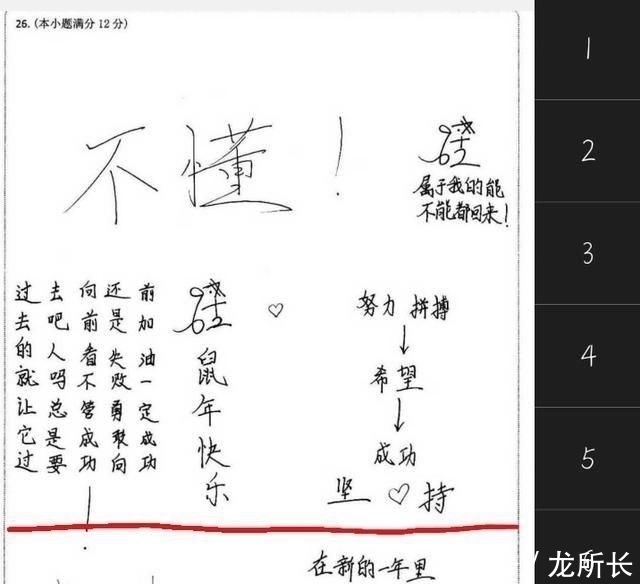 26. (本小题满分 12 分)
不懂！
属于我的能
不能都回来！
过去的就让它过
去吧人吗总是要
向前看不管成功
还是失败勇敢向
前加油一定成功
！
鼠年快乐
♡
努力 拼搏
↓
希望
↓
成功
坚♡持
在新的一年里
1
2
3
4
5
龙所长